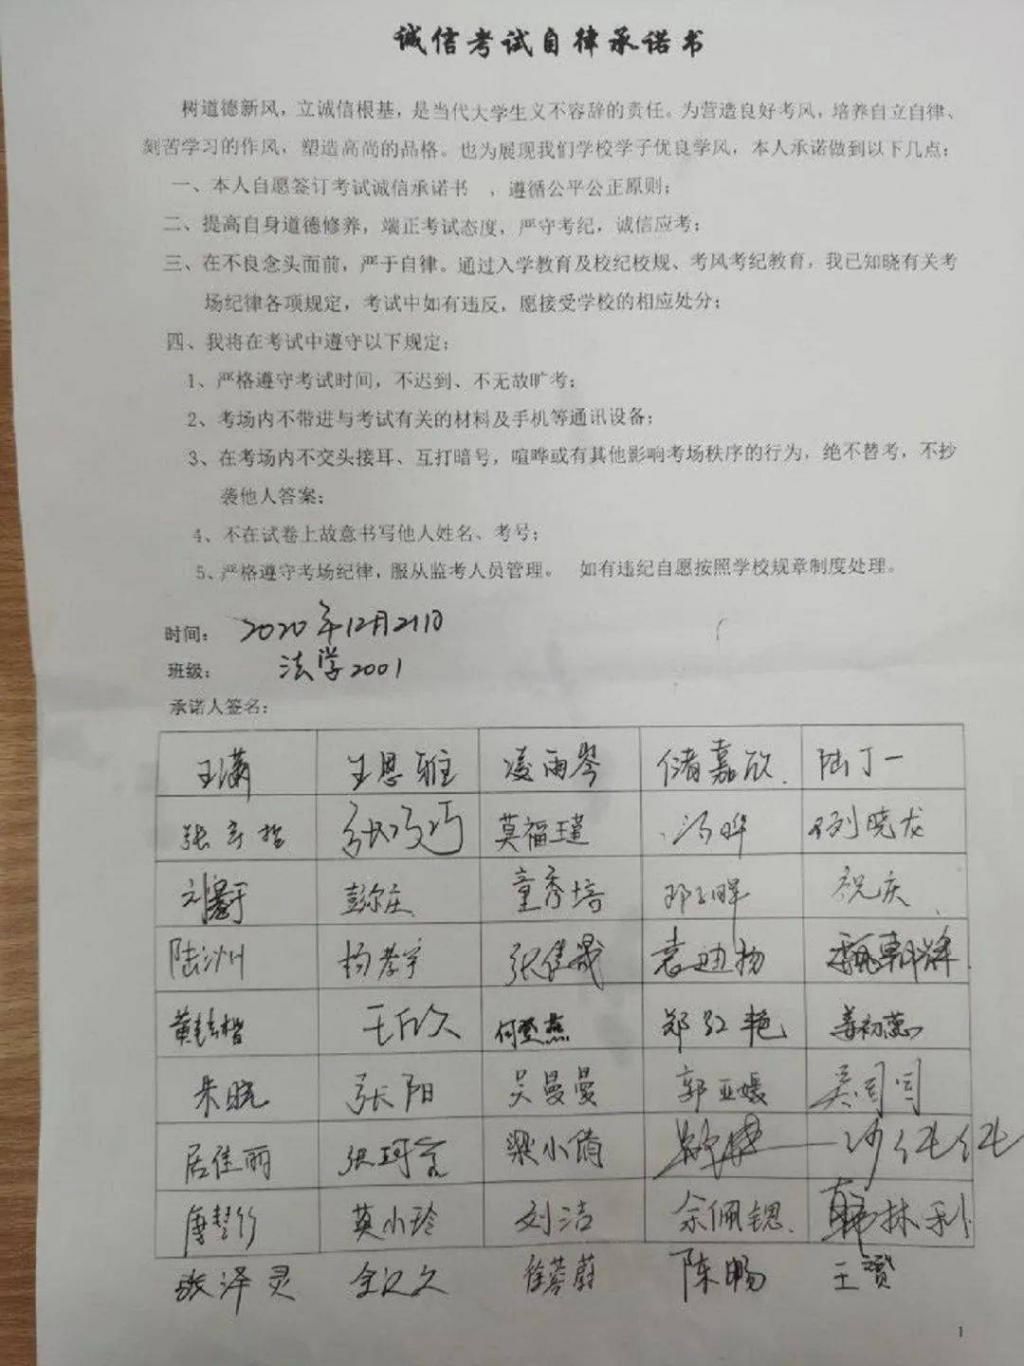 诚信考试自律承诺书
树道德新风，立诚信根基，是当代大学生义不容辞的责任。为营造良好考风，培养自立自律、
刻苦学习的作风，塑造高尚的品格。也为展现我们学校学子优良学风，本人承诺做到以下几点：
一、本人自愿签订考试诚信承诺书 ，遵循公平公正原则；
二、提高自身道德修养，端正考试态度，严守考纪，诚信应考；
三、在不良念头面前，严于自律。通过入学教育及校纪校规、考风考纪教育，我已知晓有关考
场纪律各项规定，考试中如有违反，愿接受学校的相应处分；
四、我将在考试中遵守以下规定：
1、严格遵守考试时间，不迟到、不无故旷考；
2、考场内不带进与考试有关的材料及手机等通讯设备；
3、在考场内不交头接耳、互打暗号，喧哗或有其他影响考场秩序的行为，绝不替考，不抄
袭他人答案；
4、不在试卷上故意书写他人姓名、考号；
5、严格遵守考场纪律，服从监考人员管理。 如有违纪自愿按照学校规章制度处理。
时间： 2020年12月21日
班级： 法学2001
承诺人签名：
王潇 王思雅 凌雨岑 储嘉欣 陆丁一
张巧巧 莫福瑾 汤晔 晓龙
彭尔庄 童秀培 祝庆
陆沙州 杨孝宇 张隽晟 袁迪扬 甄朝辉
何登燕 郑红艳 姜初蕊
朱晓 张阳 吴曼曼 郭亚媛 吴闫闫
居佳丽 张珂 梁小倩
唐楚竹 莫小玲 刘洁 余佩锶 韩林利
张泽灵 徐蓉蔚 陈畅 王赟
1